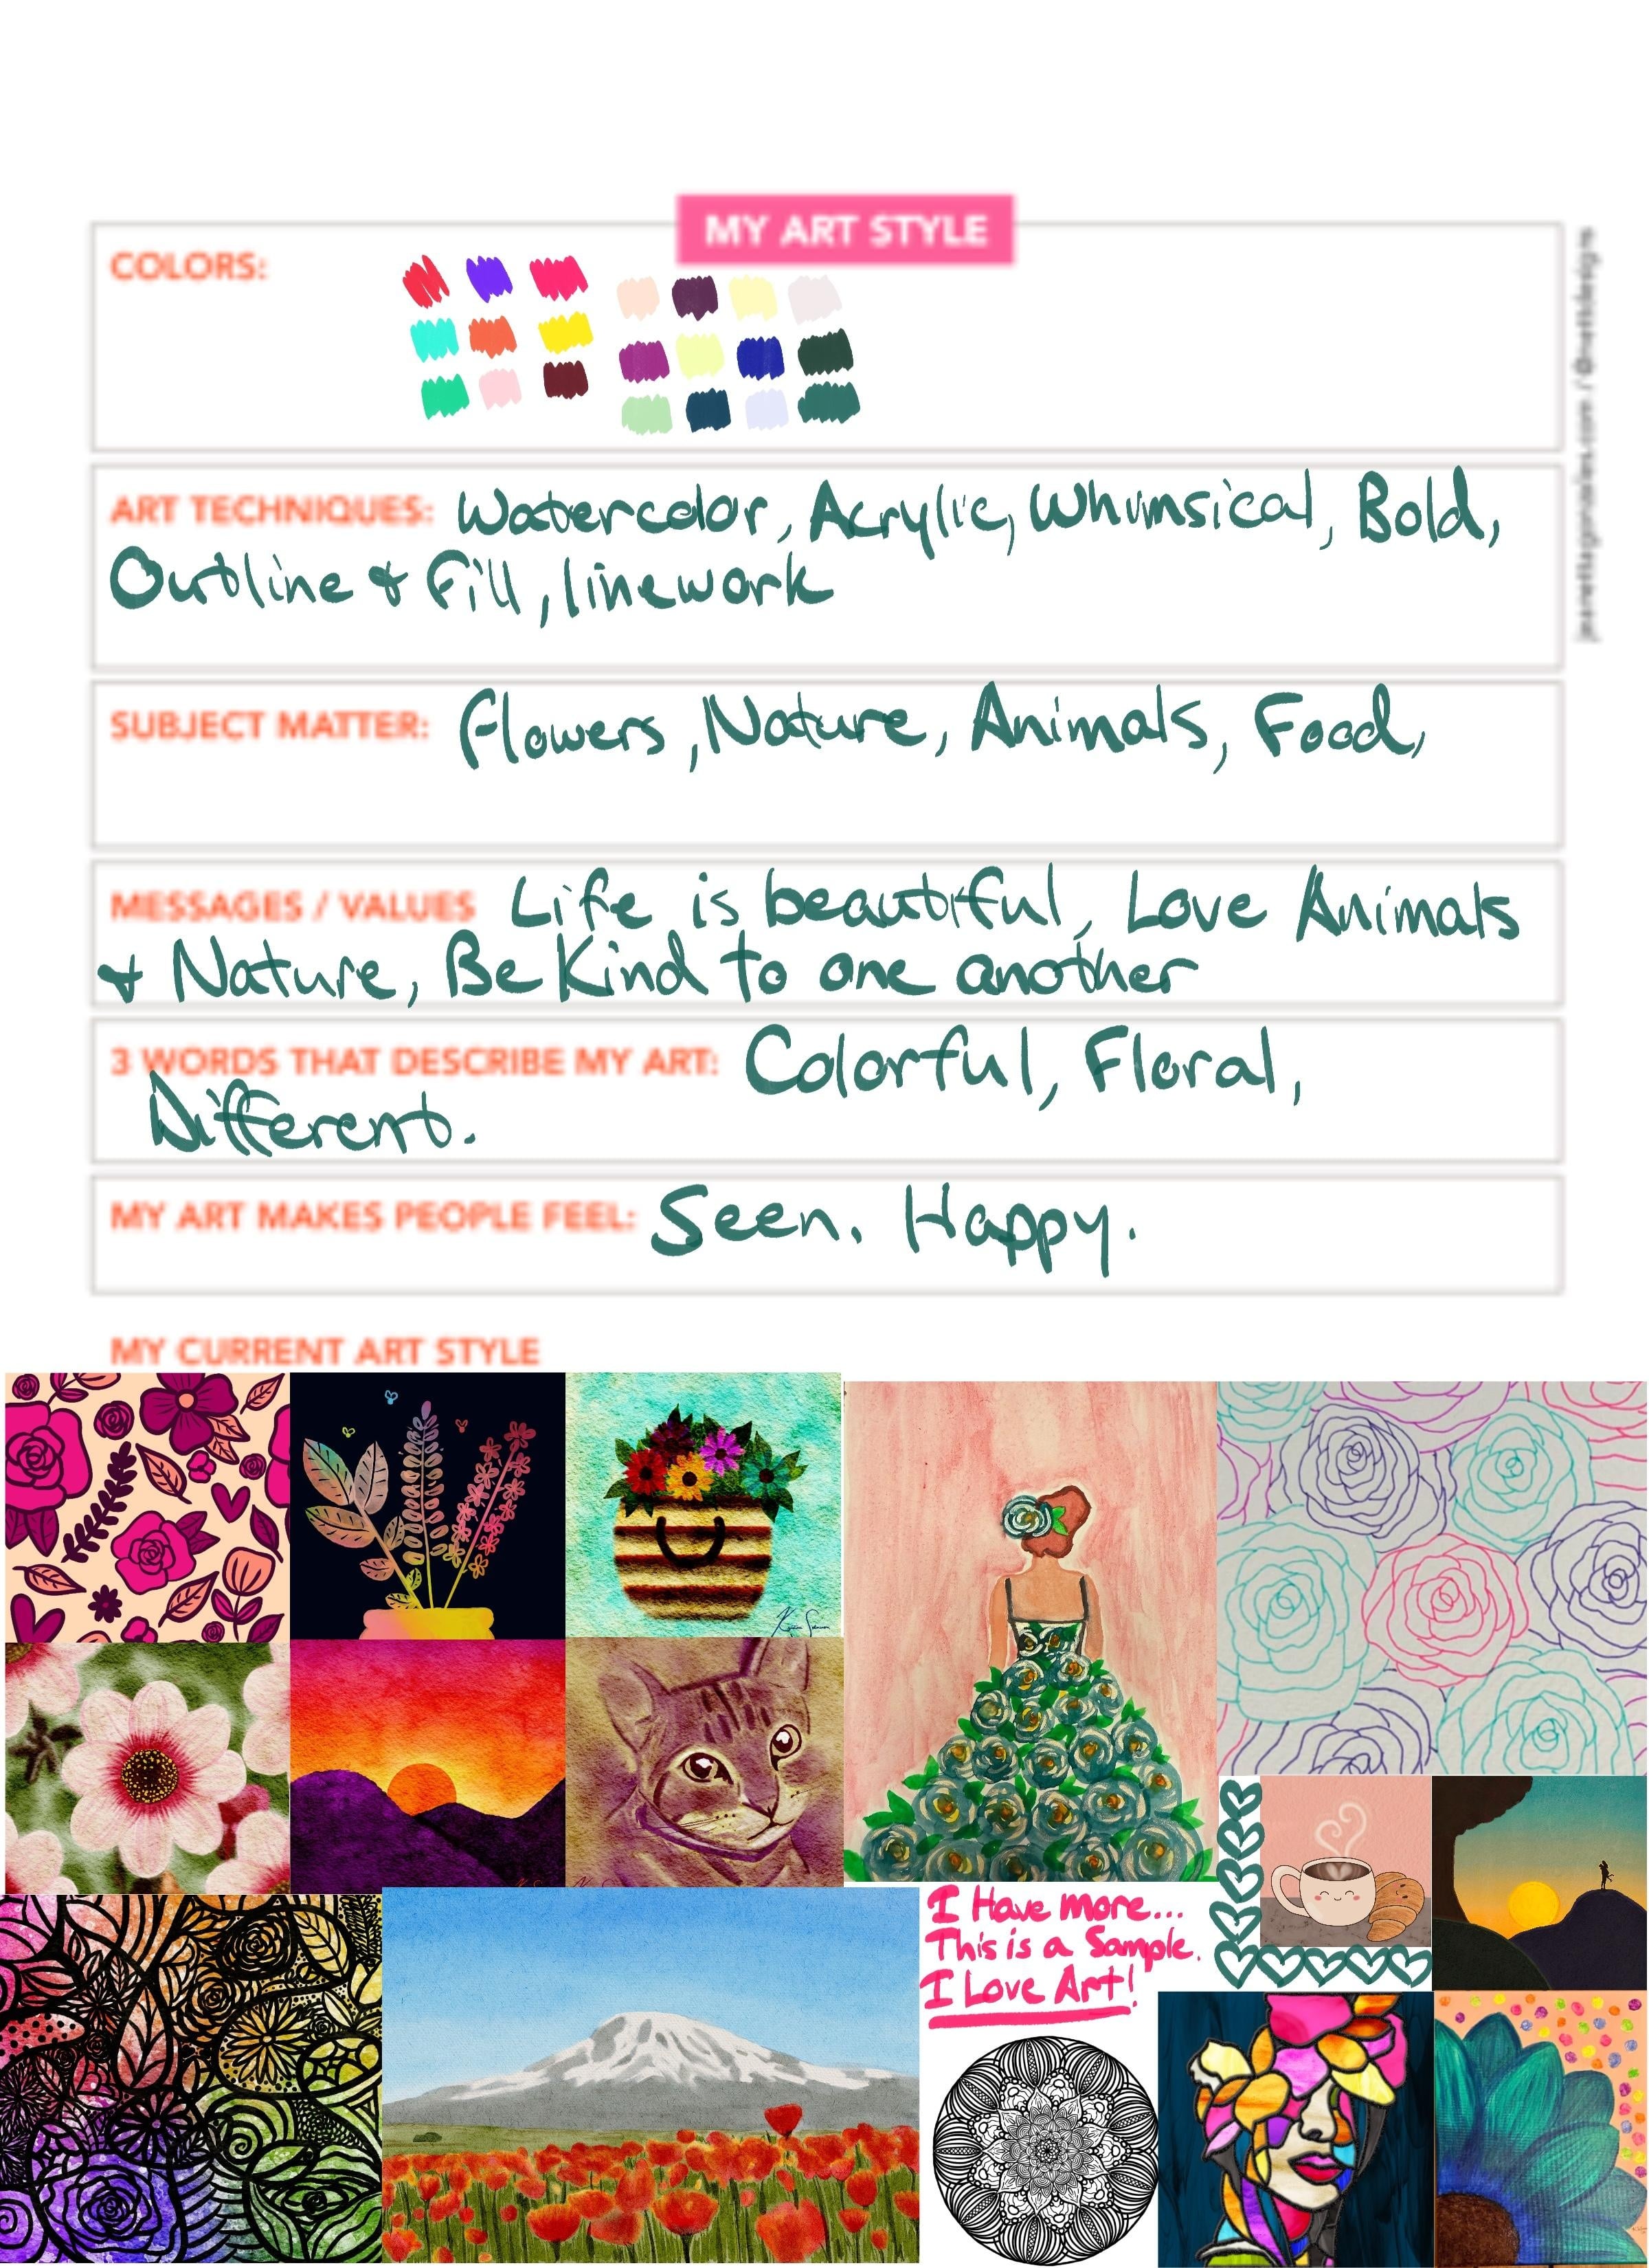 MY ART STYLE
COLORS:
ART TECHNIQUES: Watercolor, Acrylic, Whimsical, Bold,
Outline & Fill, linework
SUBJECT MATTER: Flowers, Nature, Animals, Food,
MESSAGES / VALUES Life is beautiful, Love Animals
& Nature, Be Kind to one another
3 WORDS THAT DESCRIBE MY ART: Colorful, Floral,
Different.
MY ART MAKES PEOPLE FEEL: Seen. Happy.
MY CURRENT ART STYLE
I Have more...
This is a Sample.
I Love Art!